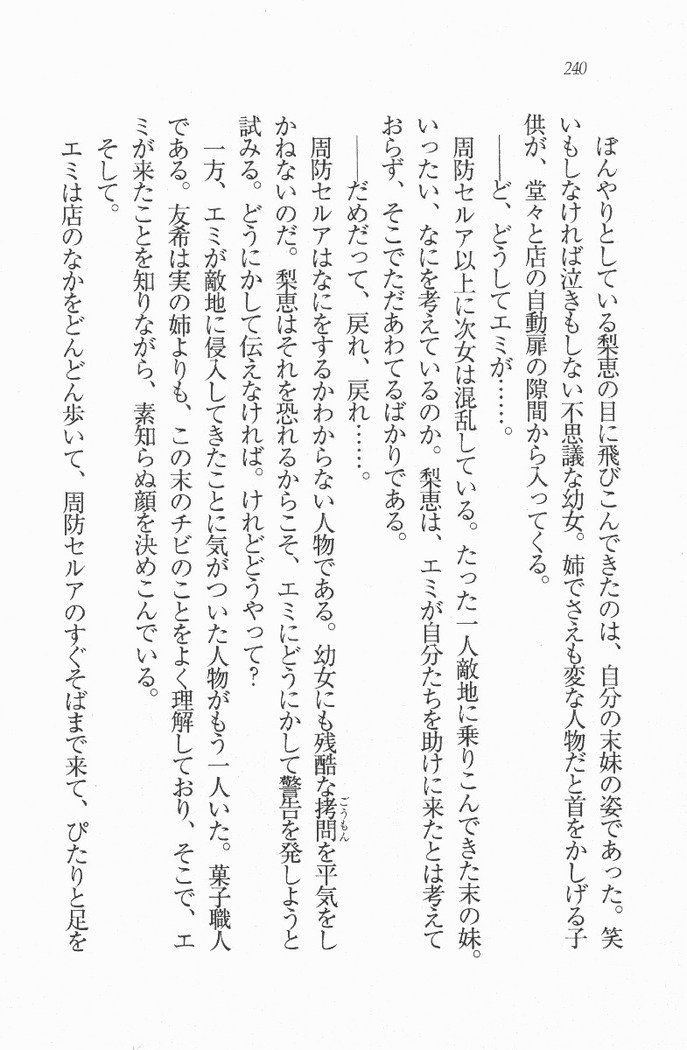 240
ぼんやりとしている梨恵の目に飛びこんできたのは、自分の末妹の姿であった。笑
いもしなければ泣きもしない不思議な幼女。姉でさえも変な人物だと首をかしげる子
供が、堂々と店の自動扉の隙間から入ってくる。
――ど、どうしてエミが……。
周防セルア以上に次女は混乱している。たった一人敵地に乗りこんできた末の妹。
いったい、なにを考えているのか。梨恵は、エミが自分たちを助けに来たとは考えて
おらず、そこでただあわてるばかりである。
――だめだって、戻れ、戻れ……。
周防セルアはなにをするかわからない人物である。幼女にも残酷な拷問ごうもんを平気をし
かねないのだ。梨恵はそれを恐れるからこそ、エミにどうにかして警告を発しようと
試みる。どうにかして伝えなければ。けれどどうやって?
一方、エミが敵地に侵入してきたことに気がついた人物がもう一人いた。菓子職人
である。友希は実の姉よりも、この末のチビのことをよく理解しており、そこで、エ
ミが来たことを知りながら、素知らぬ顔を決めこんでいる。
そして。
エミは店のなかをどんどん歩いて、周防セルアのすぐそばまで来て、ぴたりと足を